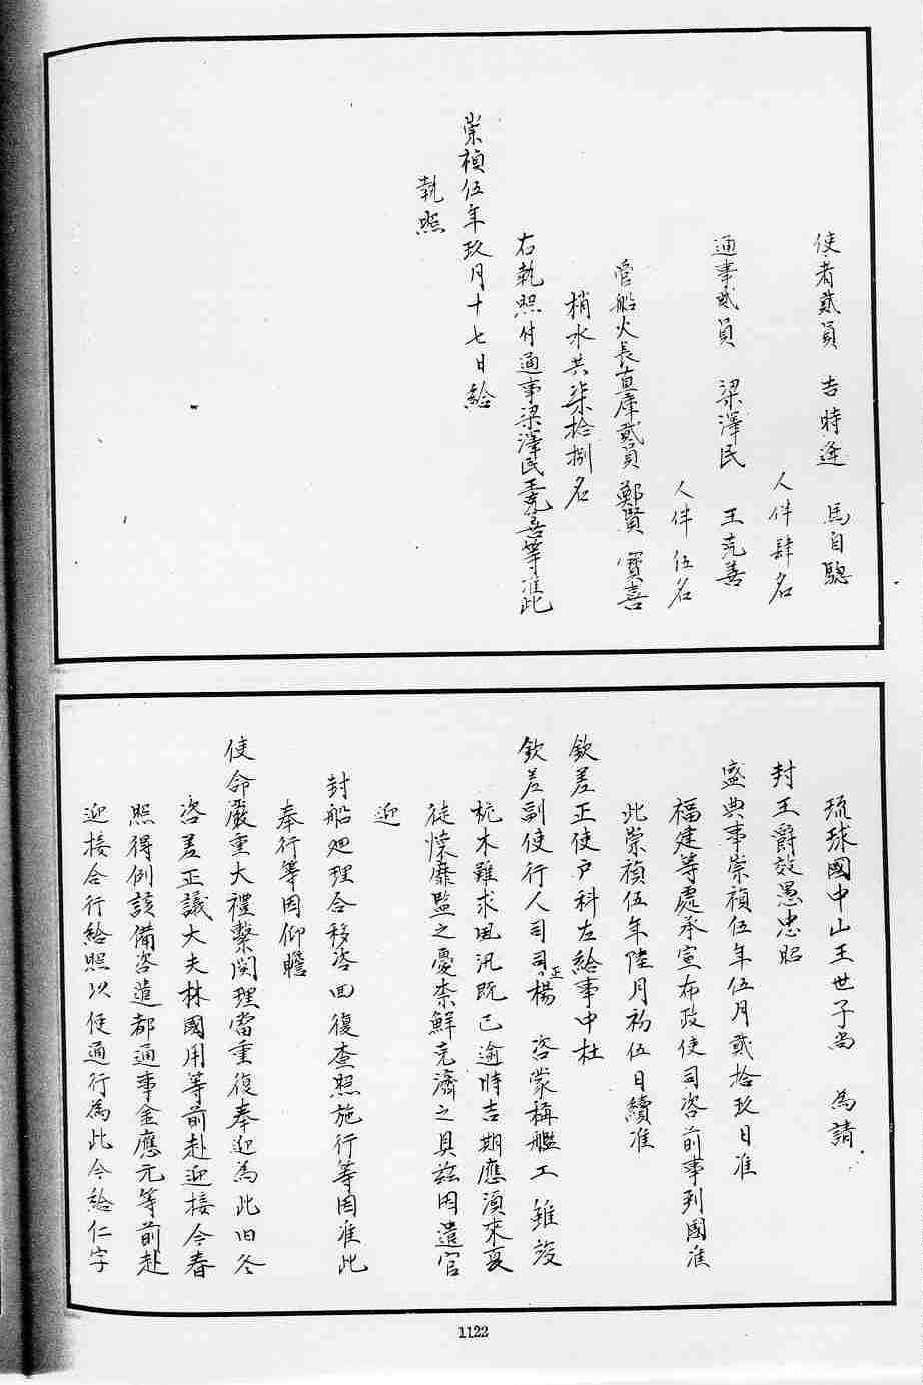 使者貳員　吉時逢　馬自騘
人伴肆名
通事貳員　梁澤民　王克善
人伴伍名
管船火長直庫貳員　鄭賢　寶喜
梢水共柒拾捌名
右執照付通事梁澤民王克善等准此
崇禎伍年玖月十七日給
執照
琉球國中山王世子尚　為請
封王爵效愚忠昭
盛典事崇禎伍年伍月貳拾玖日准
福建等處承宣布政使司咨前事到國准
此崇禎伍年陸月初伍日續准
欽差正使戶科左給事中杜
欽差副使行人司司正楊　咨蒙稱艦工　雖竣
桅木難求風汛既已逾時吉期應須來夏
徒懷靡監之憂柰鮮克濟之具茲因遣官
迎
封船廻理合移咨回復查照施行等因准此
奉行等因仰瞻
使命嚴重大禮繫関理當重復奉迎為此旧冬
咨差正議大夫林國用等前赴迎接今春
照得例該備咨遣都通事金應元等前赴
迎接合行給照以便通行為此今給仁字
1122